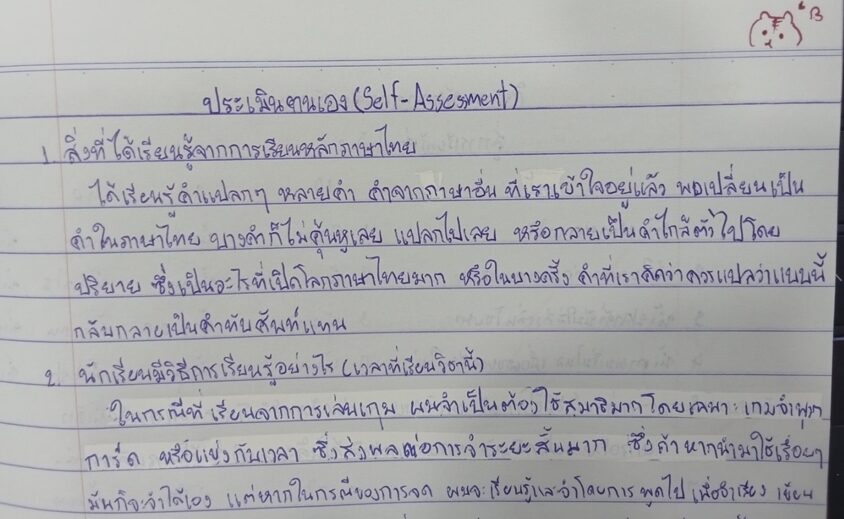 ประเมินตนเอง (Self-Assessment)
1. สิ่งที่ได้เรียนรู้จากการเรียนหลักภาษาไทย
ได้เรียนรู้คำแปลกๆ หลายคำ คำจากภาษาอื่น ที่เราเข้าใจอยู่แล้ว พอเปลี่ยนเป็น
คำในภาษาไทย บางคำก็ไม่คุ้นหูเลย แปลกไปเลย หรือกลายเป็นคำใกล้ตัวไปโดย
ปริยาย ซึ่งเป็นอะไรที่เปิดโลกภาษาไทยมาก หรือในบางครั้ง คำที่เราคิดว่าควรแปลว่าแบบนี้
กลับกลายเป็นคำทับศัพท์แทน
2. นักเรียนมีวิธีการเรียนรู้อย่างไร (เวลาที่เรียนวิชานี้)
ในกรณีที่เรียนจากการเล่นเกม ผมจำเป็นต้องใช้สมาธิมากโดยเฉพาะเกมจำพวก
การ์ด หรือแข่งกับเวลา ซึ่งส่งผลต่อการจำระยะสั้นมาก ซึ่งถ้าหากนำมาใช้เรื่อยๆ
มันก็จะจำได้เอง แต่หากในกรณีของการจด ผมจะเรียนรู้และจำโดยการพูดไป เขียน